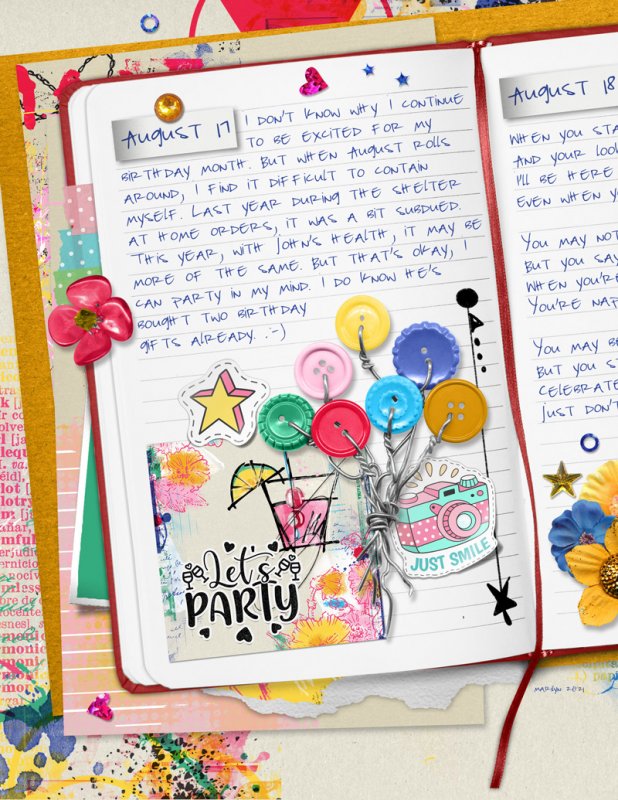 AUGUST 17
I DON'T KNOW WHY I CONTINUE
TO BE EXCITED FOR MY
BIRTHDAY MONTH. BUT WHEN AUGUST ROLLS
AROUND, I FIND IT DIFFICULT TO CONTAIN
MYSELF. LAST YEAR DURING THE SHELTER
AT HOME ORDERS, IT WAS A BIT SUBDUED.
THIS YEAR, WITH JOHN'S HEALTH, IT MAY BE
MORE OF THE SAME. BUT THAT'S OKAY, I
CAN PARTY IN MY MIND. I DO KNOW HE'S
BOUGHT TWO BIRTHDAY
GIFTS ALREADY. :-)
Let's
PARTY
JUST SMILE
AUGUST 18
WHEN YOU STA
AND YOUR LOO
I'LL BE HERE
EVEN WHEN Y
YOU MAY NOT
BUT YOU SAY
WHEN YOU'RE
YOU'RE NAP
YOU MAY BE
BUT YOU S
CELEBRATE
JUST DON'T
MARILYN 2021